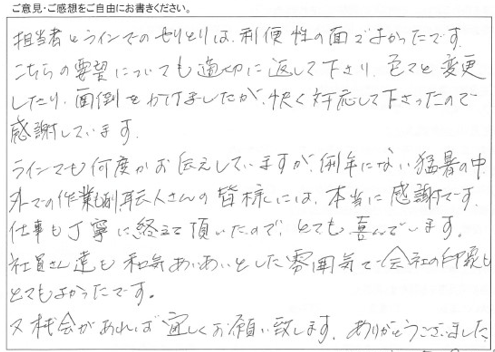 ご意見・ご感想をご自由にお書きください。
担当者とラインでのやりとりは、利便性の面でよかったです。
こちらの要望についても適切に返して下さり、色々と変更
したり、面倒をかけましたが、快く対応して下さったので
感謝しています。
ラインでも何度かお伝えしていますが、例年にない猛暑の中
外での作業職人さんの皆様には、本当に感謝です。
仕事も丁寧に終えて頂いたので、とても喜んでいます。
社員さん達も和気あいあいとした雰囲気で会社の印象も
とてもよかったです。
又機会があれば宜しくお願い致します。ありがとうございました